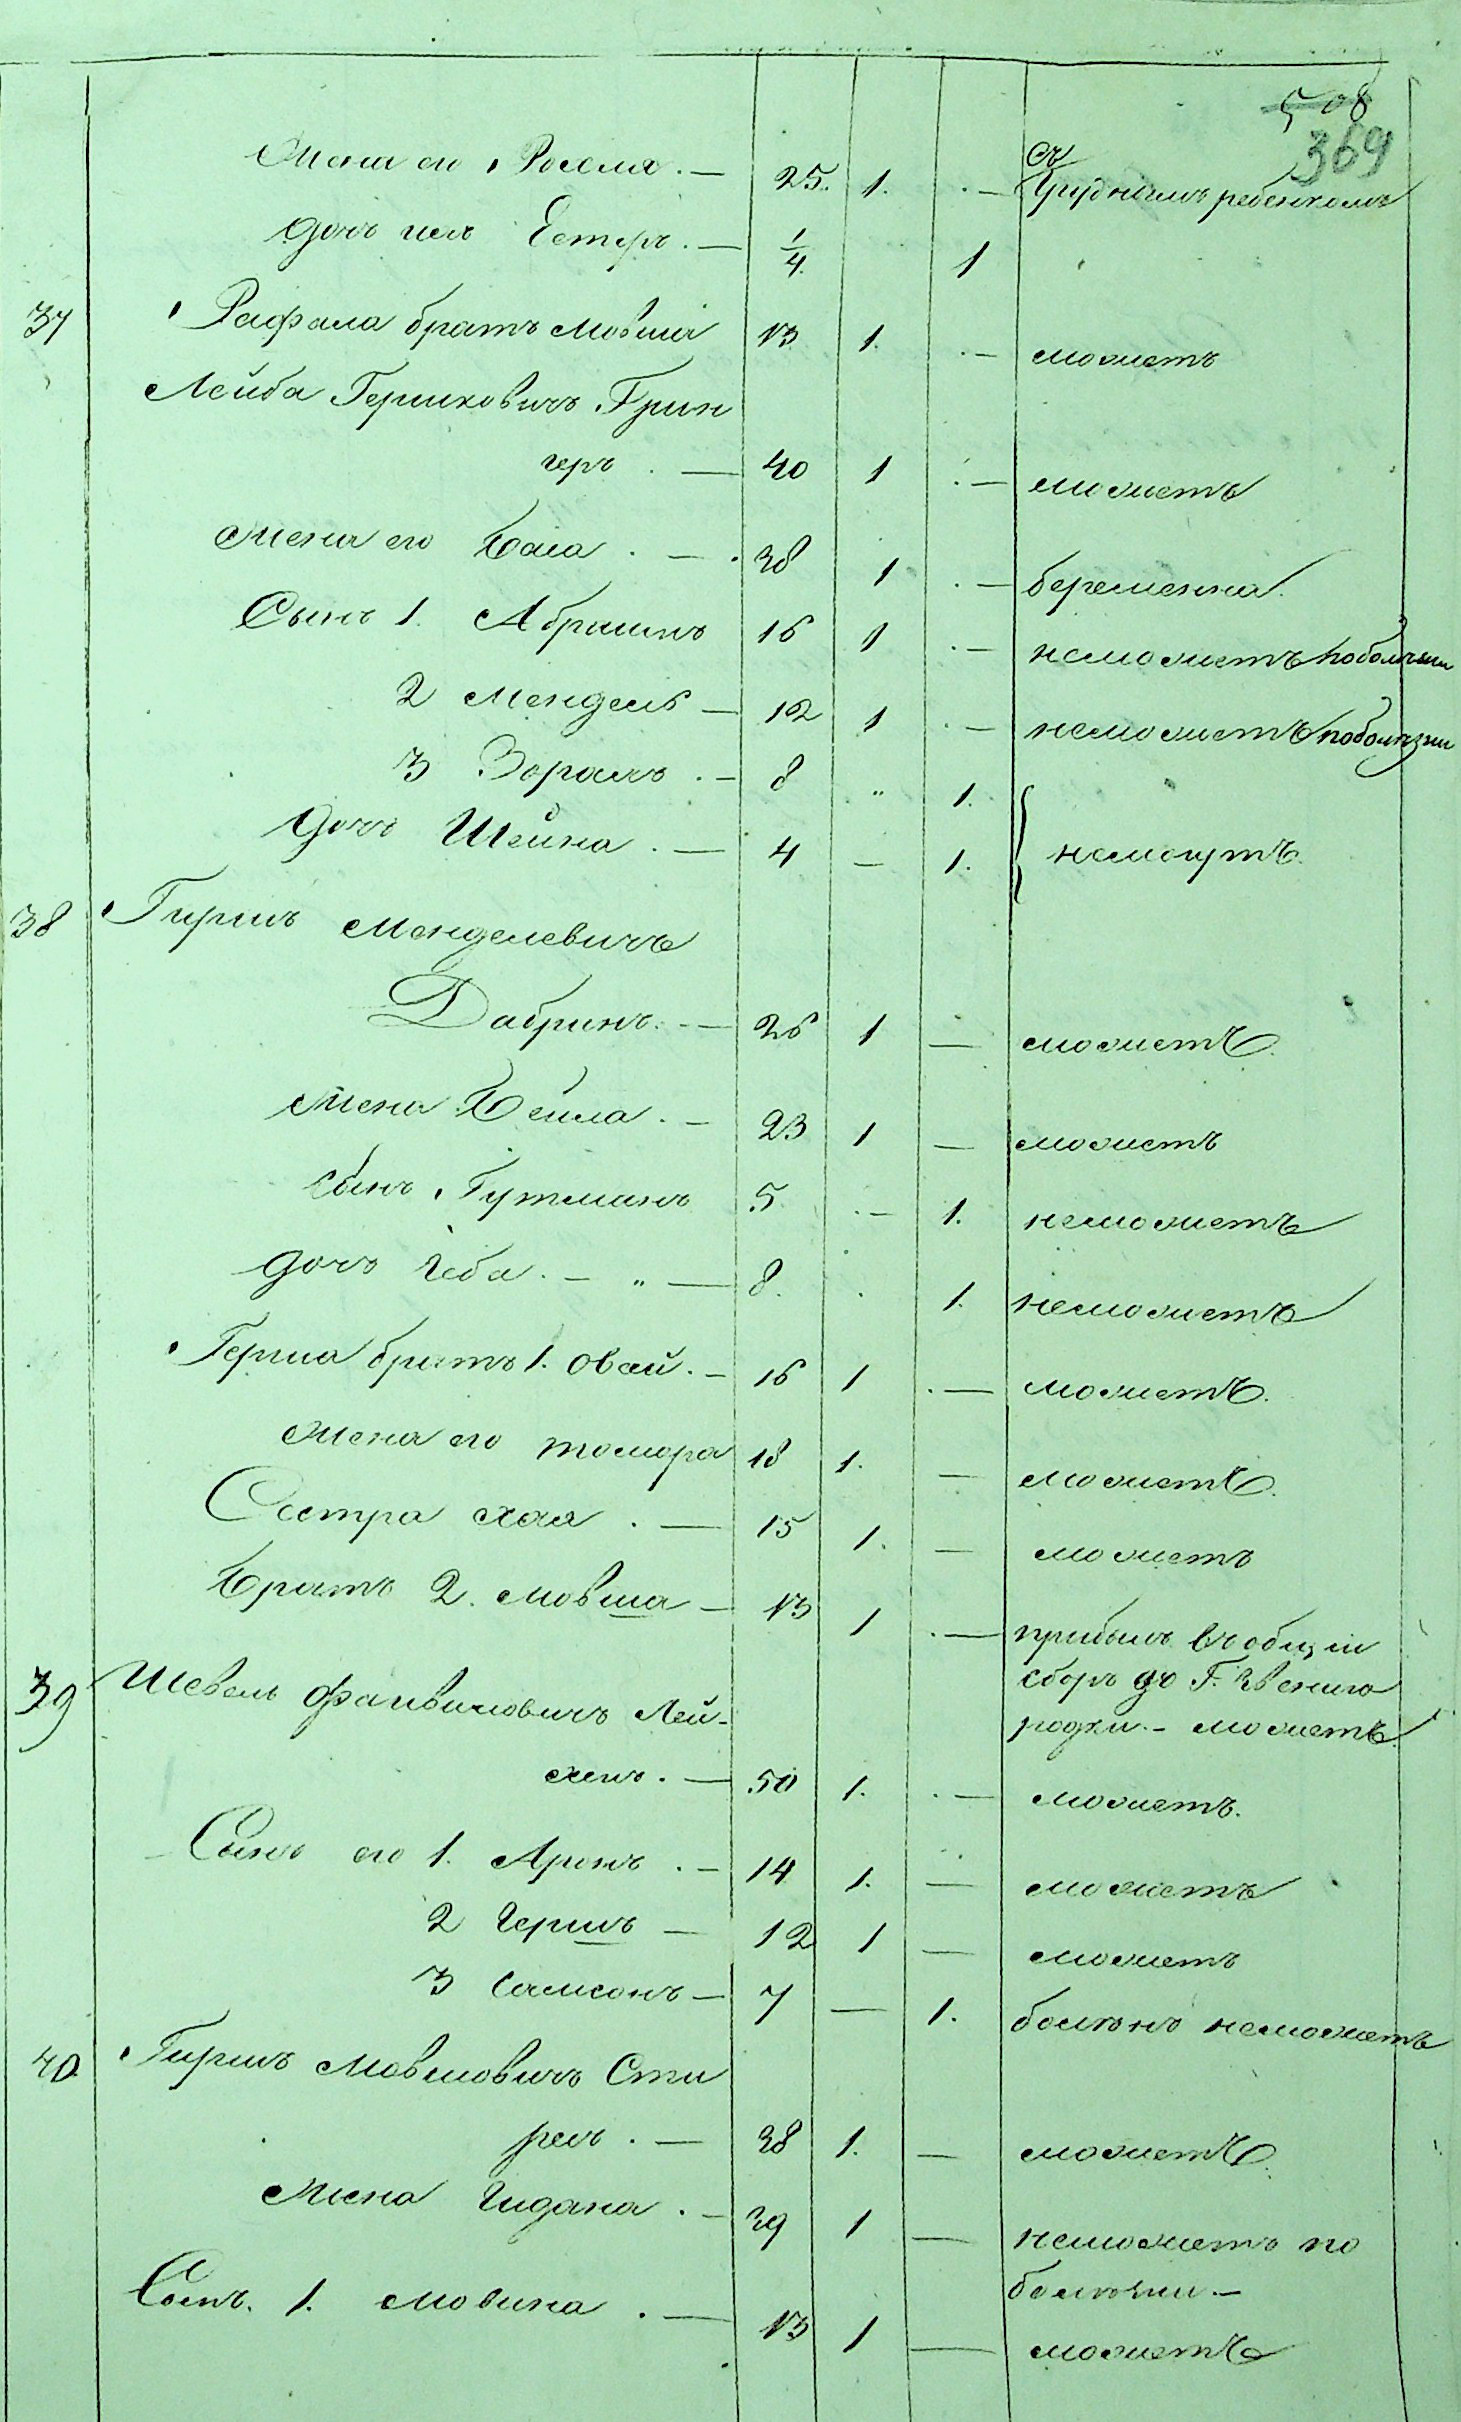 508
369
Жена его Росля. — 25. 1. . — съ груднымъ ребенкомъ
дочь ихъ Естеръ. — 1/4. 1
Рафала братъ Мовша 13 1. . — можетъ
37 Лейба Гершковичъ Грин
геръ . — 40 1 . — можетъ
Жена его Бася . — . 38 1 . — беременна.
Сынъ 1. Абрамъ 16 1 . — неможетъ по болезни
2 Мендель — 12 1 . — неможетъ по болезни
3 Зорахъ . — 8 „ 1.
дочь Шейна . — 4 — 1. } немогутъ
38 Гиршъ Менделевичъ
Дабринъ. — 26 1 — можетъ.
Жена Бейла . — 23 1 — можетъ
сынъ Гутманъ 5 . — 1. неможетъ
дочь Геба. — „ — 8. . 1. неможетъ
Герша братъ 1. Овсей. — 16 1 . — можетъ.
Жена его томора 18 1. — можетъ.
Сестра хая . — 15 1. — можетъ
Братъ 2. Мовша — 13 1 . — прибылъ въ общій
сборъ до Г. Звениго
родки. — можетъ.
39 Шевель Файвишовичъ Лей-
хенъ. — 50 1. . — можетъ.
Сынъ его 1. Аронъ . — 14 1. — можетъ
2 Гершъ — 12 1 — можетъ
3 Самсонъ — 7 — 1. боленъ неможетъ
40 Гиршъ Мовшовичъ Сти
рель . — 38 1. — можетъ.
Жена Гидана . — 39 1 — неможетъ по
болезни. —
Сынъ. 1. Мовша . — 13 1 — можетъ